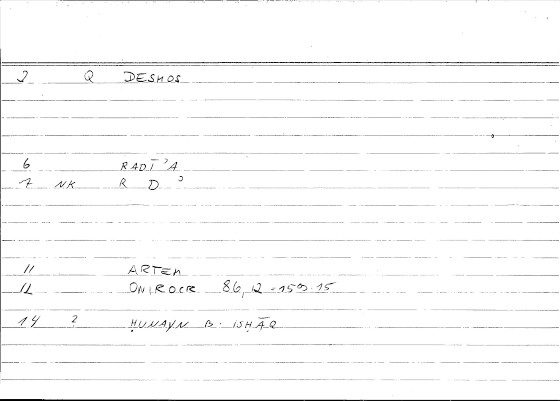 2 Q DESMOS
6 RADĪʾA
7 NK R D ʾ
11 ARTEM
12 ONIROCR 86,12 - 15 15
14 ? ḤUNAYN B. ISḤĀQ